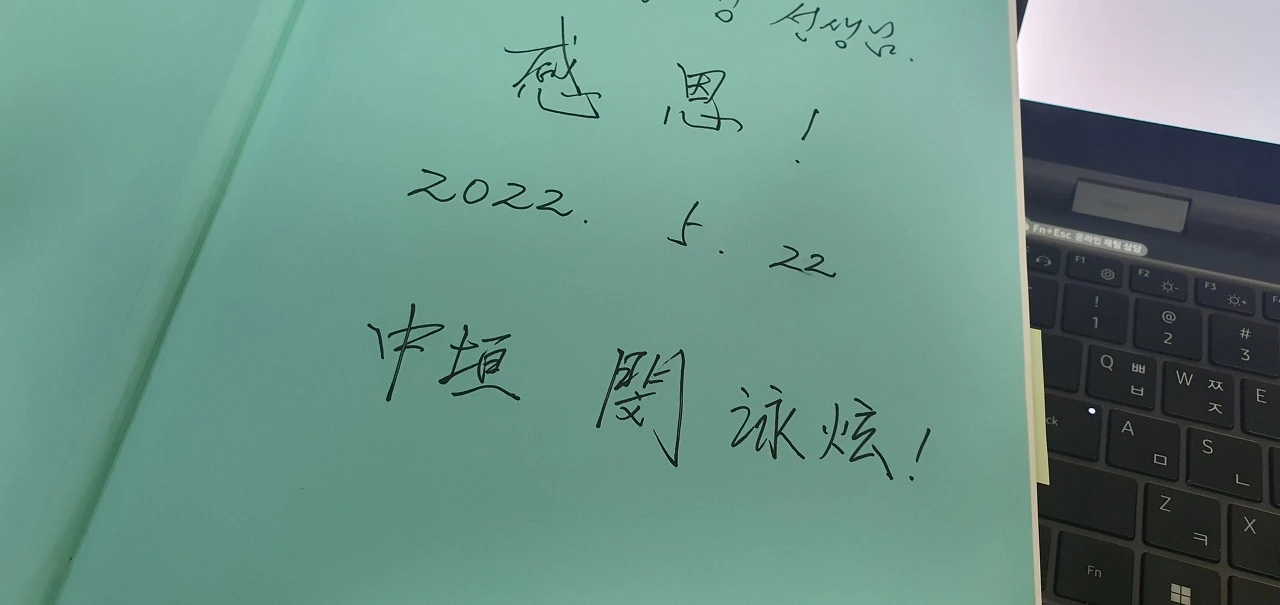 선생님.
感恩!
2022. 5. 22
中垣 閔 泳炫!
Fn+Esc 온라인 채팅 상담
F1 F2 F3
! 1 @ 2 # 3
Q ㅃ ㅂ W ㅉ ㅈ E
A ㅁ S ㄴ
Z ㅋ X
Fn